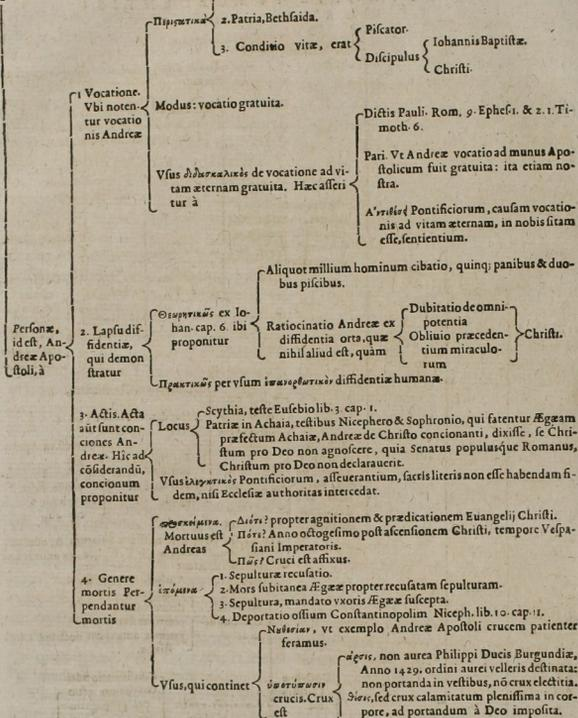 Περιστατικὰ
2. Patria, Bethsaida.
3. Conditio vitæ, erat
Piscator.
Discipulus
Iohannis Baptistæ.
Christi.
1 Vocatione.
Vbi noten-
tur vocatio
nis Andreæ
Modus: vocatio gratuita.
Vsus διδασκαλικὸς de vocatione ad vi-
tam æternam gratuita. Hæc asseri
tur à
Dictis Pauli. Rom, 9. Ephes. 1. & 2. 1. Ti-
moth. 6.
Pari. Vt Andreæ vocatio ad munus Apo-
stolicum fuit gratuita: ita etiam no-
stra.
Pontificiorum, causam vocatio-
nis ad vitam æternam, in nobis sitam
esse, sentientium.
Personæ,
id est, An-
dreæ Apo-
stoli, à
2. Lapsu dif-
fidentiæ,
qui demon
stratur
Θεωρητικῶς ex Io-
han. cap. 6. ibi
proponitur
Aliquot millium hominum cibatio, quinq; panibus & duo-
bus piscibus.
Ratiocinatio Andreæ ex
diffidentia orta, quæ
nihil aliud est, quàm
Dubitatio de omni-
potentia
Obliuio præceden-
tium miraculo-
rum
Christi.
Πρακτικῶς per vsum ἐπανορθωτικὸν diffidentiæ humanæ.
3. Actis. Acta
aūt sunt con-
ciones An-
dreæ. Hîc ad
cōsiderandū,
concionum
proponitur
Locus
Scythia, teste Eusebio lib. 3. cap. 1.
Patriæ in Achaia, testibus Nicephero & Sophronio, qui fatentur Ægæam
præfectum Achaiæ, Andreæ de Christo concionanti, dixisse, se Chri-
stum pro Deo non agnoscere, quia Senatus populusque Romanus,
Christum pro Deo non declarauerit.
Vsus ἐλεγκτικὸς Pontificiorum, asseuerantium, sacris literis non esse habendam fi-
dem, nisi Ecclesiæ authoritas intercedat.
4. Genere
mortis Per-
pendantur
mortis
Mortuus est
Andreas
Διότι? propter agnitionem & prædicationem Euangelij Christi.
Πότε? Anno octogesimo post ascensionem Christi, tempore Vespa-
siani Imperatoris.
Πῶς? Cruci est affixus.
ἑπόμενα
1. Sepulturæ recusatio.
2. Mors subitanea Ægææ propter recusatam sepulturam.
3. Sepultura, mandato vxoris Ægææ suscepta.
4. Deportatio ossium Constantinopolim Niceph. lib. 10. cap. 11.
Vsus, qui continet
Νουθεσίαν, vt exemplo Andreæ Apostoli crucem patienter
feramus.
ὑποτύπωσιν
crucis. Crux
est
ἄρσις, non aurea Philippi Ducis Burgundiæ,
Anno 1429. ordini aurei velleris destinata:
non portanda in vestibus, nō crux electitia.
θέσις, sed crux calamitatum plenissima in cor-
pore, ad portandum à Deo imposita.